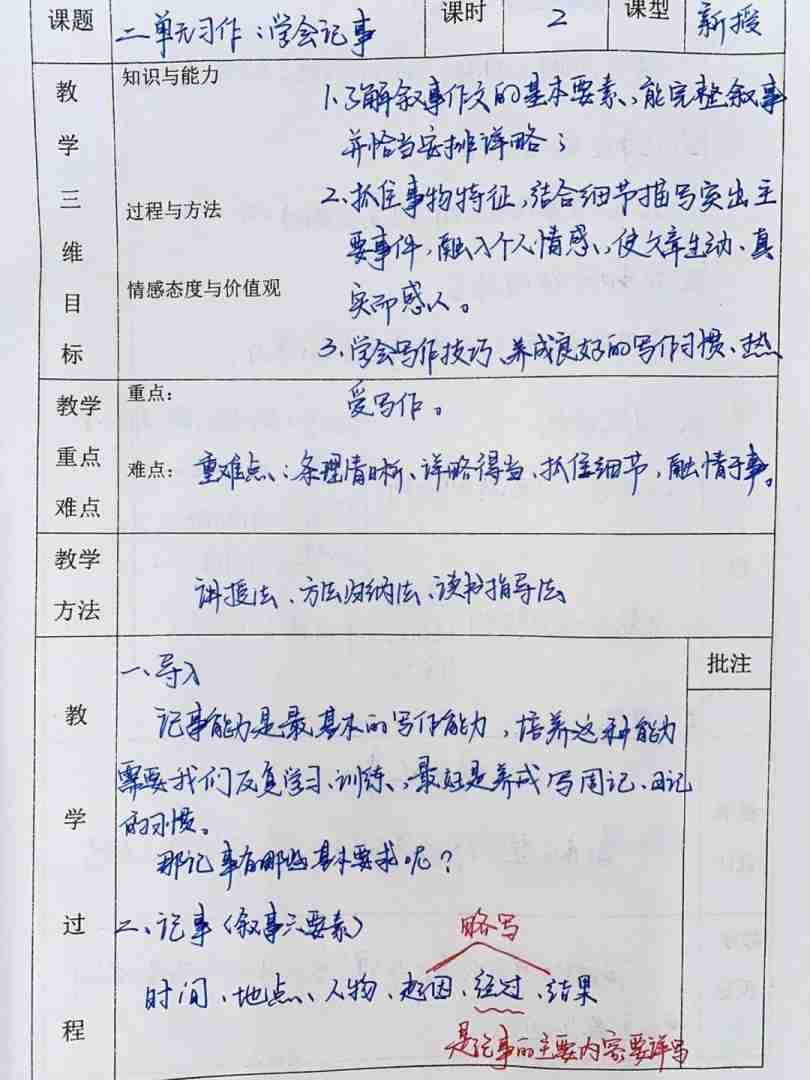 课题 二单元习作：学会记事 课时 2 课型 新授
教学三维目标
知识与能力
1、了解叙事作文的基本要素、能完整叙事
并恰当安排详略；
过程与方法
2、抓住事物特征，结合细节描写突出主
要事件，融入个人情感，使文章生动、真
情感态度与价值观
实而感人。
3、学会写作技巧、养成良好的写作习惯、热
爱写作。
教学重点难点
重点：
难点： 重难点：条理清晰、详略得当、抓住细节，融情于事。
教学方法
讲授法、方法归纳法、读书指导法
教学过程
批注
一、导入
记事能力是最基本的写作能力，培养这种能力
需要我们反复学习、训练，最好是养成写周记、日记
的习惯。
那记事有哪些基本要求呢？
二、记事（叙事六要素）
略写
时间、地点、人物、起因、经过、结果
是记事的主要内容要详写